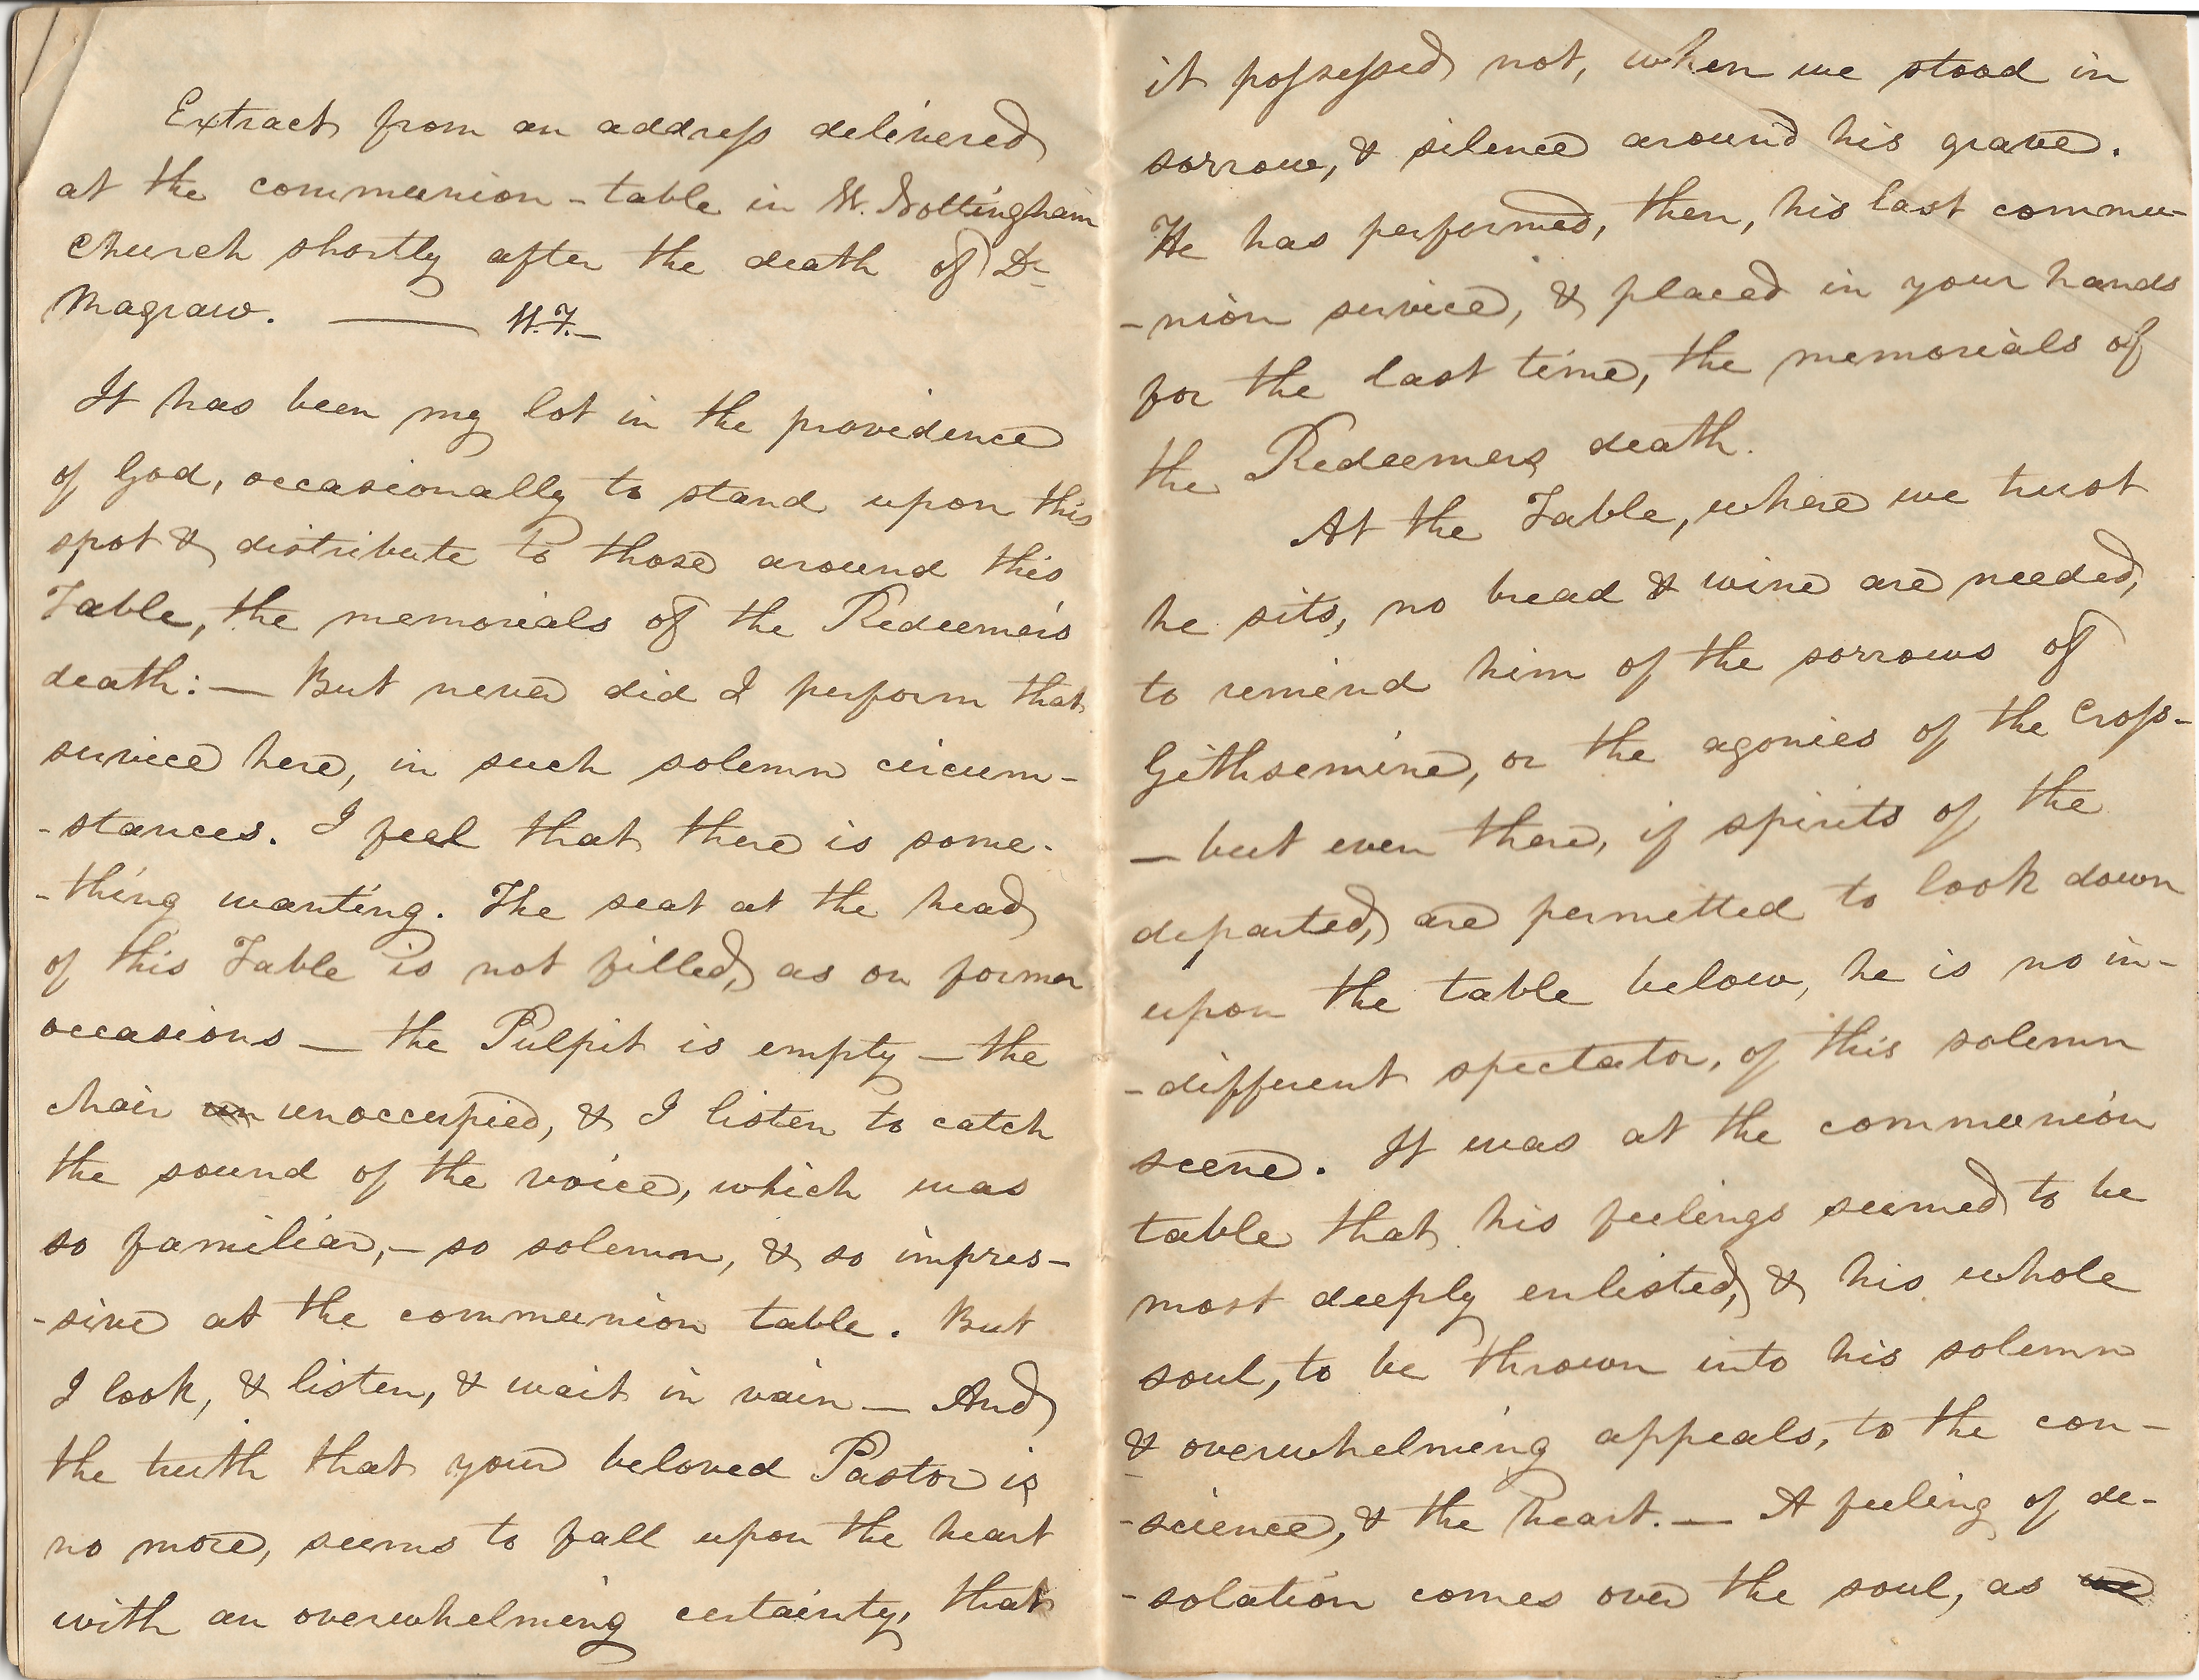 Extract from an address delivered
at the communion-table in W. Nottingham
Church shortly after the death of Dr
Magraw. —— W.F.—
It has been my lot in the providence
of God, occasionally to stand upon this
spot & distribute to those around this
Table, the memorials of the Redeemer's
death: — But never did I perform that
service here, in such solemn circum-
-stances. I feel that there is some-
-thing wanting. The seat at the head
of this Table is not filled, as on former
occasions — the Pulpit is empty — the
chair un unoccupied, & I listen to catch
the sound of the voice, which was
so familiar, — so solemn, & so impres-
-sive at the communion table. But
I look, & listen, & wait in vain — And
the truth that your beloved Pastor is
no more, seems to fall upon the heart
with an overwhelming certainty, that
it possessed not, when we stood in
sorrow, & silence around his grave.
He has performed, then, his last commu-
-nion service, & placed in your hands
for the last time, the memorials of
the Redeemers death.
At the Table, where we trust
he sits, no bread & wine are needed,
to remind him of the sorrows of
Gethsemine, or the agonies of the Cross-
— but even there, if spirits of the
departed, are permitted to look down
upon the table below, he is no in-
-different spectator, of this solemn
scene. It was at the communion
table that his feelings seemed to be
most deeply enlisted, & his whole
soul, to be thrown into his solemn
& overwhelming appeals, to the con-
-science, & the heart. — A feeling of de-
-solation comes over the soul, as we